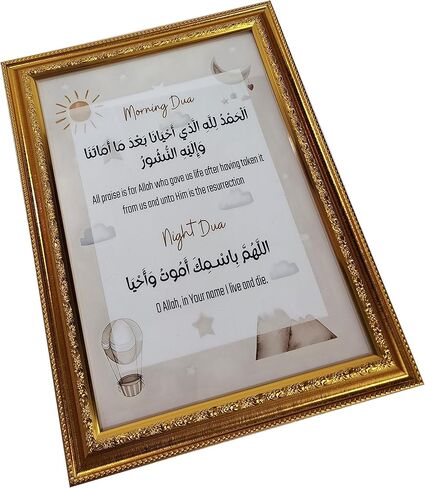 Morning Dua
الْحَمْدُ لِلَّهِ الَّذِي أَحْيَانَا بَعْدَ مَا أَمَاتَنَا
وَإِلَيْهِ النُّشُورُ
All praise is for Allah who gave us life after having taken it
from us and unto Him is the resurrection
Night Dua
اللَّهُمَّ بِاسْمِكَ أَمُوتُ وَأَحْيَا
O Allah, in Your name I live and die.